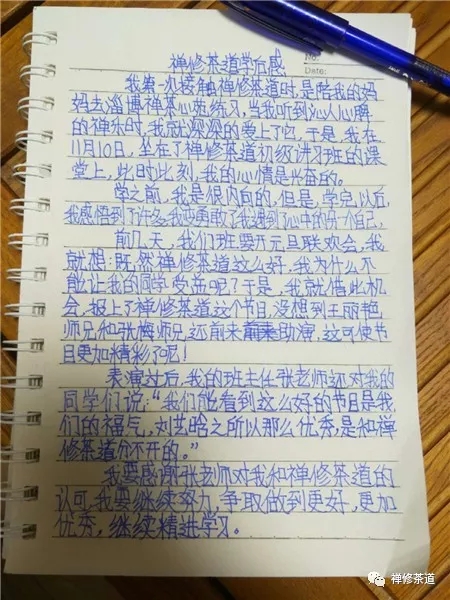 No:
Date:
禅修茶道学后感
我第一次接触禅修茶道时,是陪我的妈
妈去淄博禅茶心莲练习,当我听到沁人心脾
的禅乐时,我就深深的爱上了它,于是,我在
11月10日,坐在了禅修茶道初级讲习班的课
堂上,此时此刻,我的心情是兴奋的。
学之前,我是很内向的,但是,学完以后,
我感悟到了许多,我变勇敢了我遇到了心中的另一个自己,
前几天,我们班要开元旦联欢会,我
就想:既然禅修茶道这么好,我为什么不
能让我的同学受益呢?于是,我就借此机
会,报上了禅修茶道这个节目,没想到王丽艳
师兄和张梅师兄,还前来助演,这可使节
目更加精彩了呢!
表演过后,我的班主任张老师还对我的
同学们说:“我们能看到这么好的节目是我
们的福气,刘艺晗之所以那么优秀,是和禅
修茶道分不开的。”
我要感谢张老师对我和禅修茶道的
认可,我要继续努力,争取做到更好,更加
优秀,继续精进学习。
禅修茶道